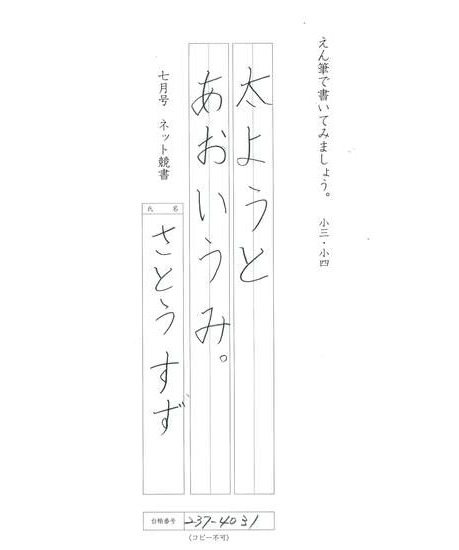 えん筆で書いてみましょう。 小三・小四
太ようと
あおいうみ。
七月号 ネット競書
氏名
さとうすず
台帳番号 237-4031
(コピー不可)